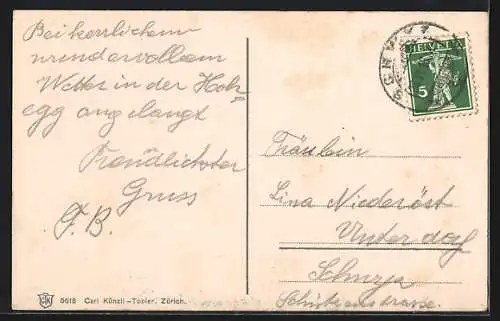 Bei herrlichem
wundervollem
Wetter in der Holz=
egg angelangt
Freundlichster
Gruss
F. B.
5618 Carl Künzli-Tobler, Zürich.
HELVETIA
5
SCHWYZ
Fräulein
Lina Niederöst
Unterdorf
Schwyz
Schützenstrasse.